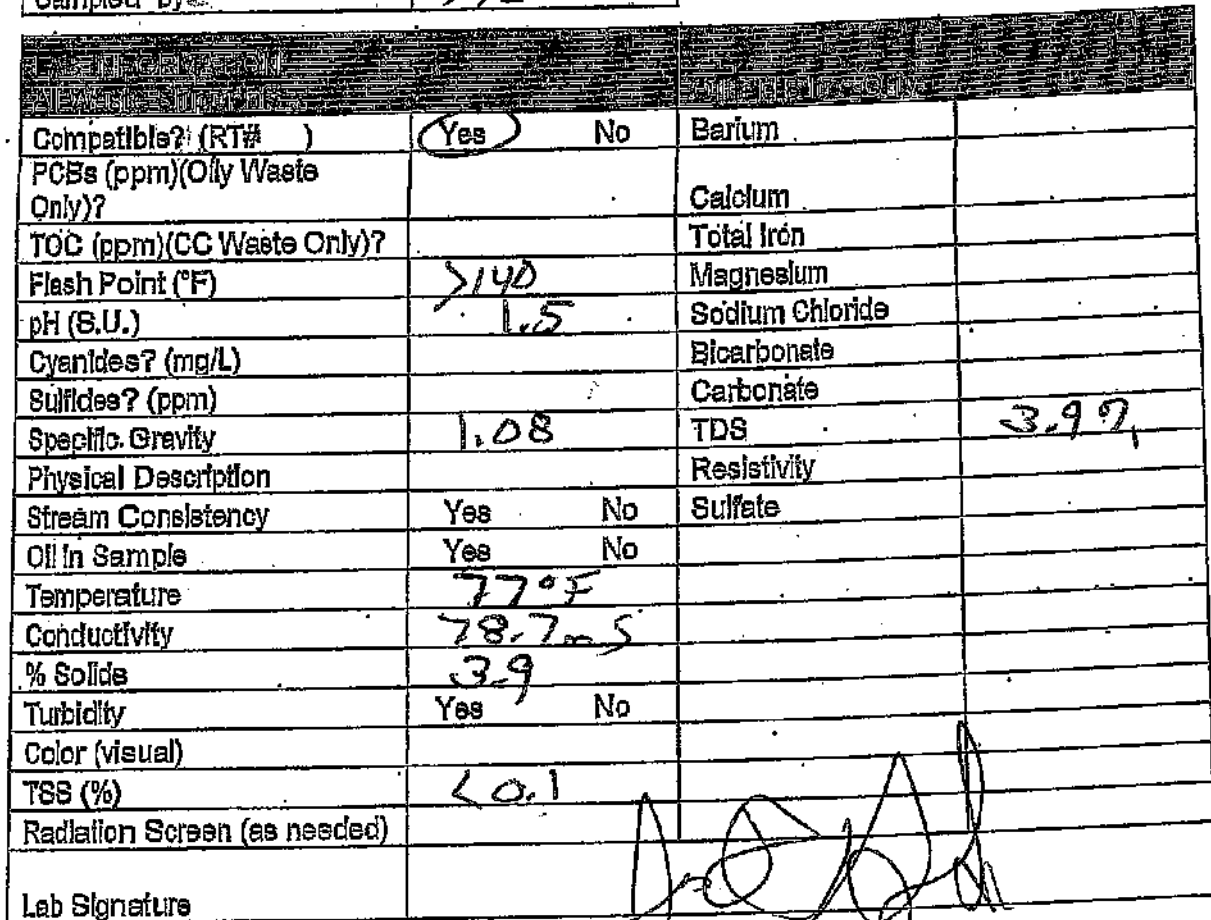 Sampled By
LAB INFORMATION
All Waste Shipments
Compatible? (RT# ) Yes No Barium
PCBs (ppm)(Oily Waste
Only)? Calcium
TOC (ppm)(CC Waste Only)? Total Iron
Flash Point (°F) >140 Magnesium
pH (S.U.) 1.5 Sodium Chloride
Cyanides? (mg/L) Bicarbonate
Sulfides? (ppm) Carbonate
Specific Gravity 1.08 TDS 3.9%
Physical Description Resistivity
Stream Consistency Yes No Sulfate
Oil in Sample Yes No
Temperature 77°F
Conductivity 78.7mS
% Solids 3.9
Turbidity Yes No
Color (visual)
TSS (%) <0.1
Radiation Screen (as needed)
Lab Signature